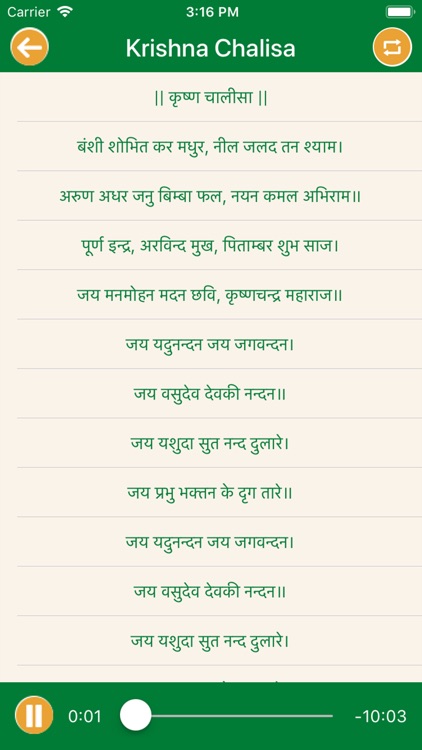 Carrier 3:16 PM
Krishna Chalisa
|| कृष्ण चालीसा ||
बंशी शोभित कर मधुर, नील जलद तन श्याम।
अरुण अधर जनु बिम्बा फल, नयन कमल अभिराम॥
पूर्ण इन्द्र, अरविन्द मुख, पिताम्बर शुभ साज।
जय मनमोहन मदन छवि, कृष्णचन्द्र महाराज॥
जय यदुनन्दन जय जगवन्दन।
जय वसुदेव देवकी नन्दन॥
जय यशुदा सुत नन्द दुलारे।
जय प्रभु भक्तन के दृग तारे॥
जय यदुनन्दन जय जगवन्दन।
जय वसुदेव देवकी नन्दन॥
जय यशुदा सुत नन्द दुलारे।
0:01 -10:03